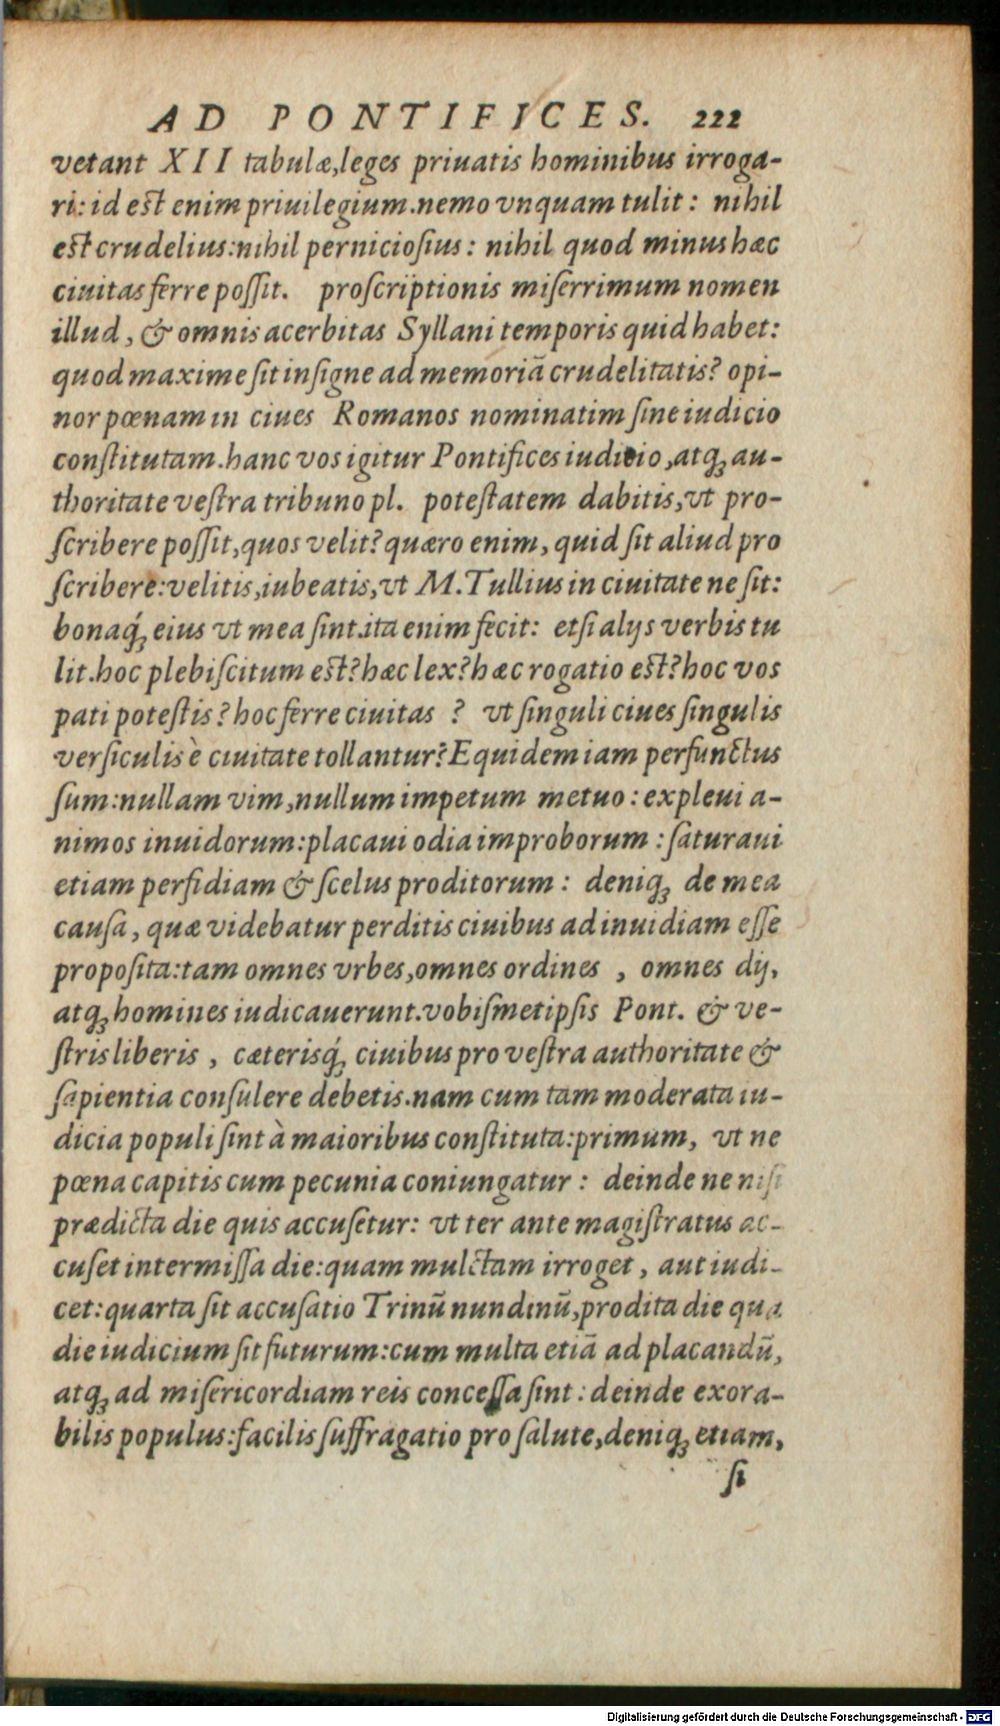 AD PONTIFICES. 222
vetant XII tabulæ,leges priuatis hominibus irroga-
ri: id est enim priuilegium.nemo vnquam tulit: nihil
est crudelius:nihil perniciosius: nihil quod minus hæc
ciuitas ferre possit. proscriptionis miserrimum nomen
illud, & omnis acerbitas Syllani temporis quid habet:
quod maxime sit insigne ad memoriā crudelitatis? opi-
nor pœnam in ciues Romanos nominatim sine iudicio
constitutam.hanc vos igitur Pontifices iudicio,atq; au-
thoritate vestra tribuno pl. potestatem dabitis,vt pro-
scribere possit,quos velit?quæro enim, quid sit aliud pro
scribere:velitis,iubeatis,vt M.Tullius in ciuitate ne sit:
bonaq́; eius vt mea sint.ita enim fecit: etsi alijs verbis tu
lit.hoc plebiscitum est?hæc lex?hæc rogatio est?hoc vos
pati potestis?hoc ferre ciuitas ? vt singuli ciues singulis
versiculis è ciuitate tollantur?Equidem iam perfunctus
sum:nullam vim,nullum impetum metuo: expleui a-
nimos inuidorum:placaui odia improborum :saturaui
etiam perfidiam & scelus proditorum: deniq; de mea
causa, quæ videbatur perditis ciuibus ad inuidiam esse
proposita:tam omnes vrbes,omnes ordines , omnes dij,
atq; homines iudicauerunt.vobismetipsis Pont. & ve-
stris liberis , cæterisq́; ciuibus pro vestra authoritate &
sapientia consulere debetis.nam cum tam moderata iu-
dicia populi sint à maioribus constituta:primum, vt ne
pœna capitis cum pecunia coniungatur: deinde ne nisi
prædicta die quis accusetur: vt ter ante magistratus ac-
cuset intermissa die:quam mulctam irroget, aut iudi-
cet:quarta sit accusatio Trinū nundinū,prodita die qua
die iudicium sit futurum:cum multa etiā ad placandū,
atq; ad misericordiam reis concessa sint: deinde exora-
bilis populus:facilis suffragatio pro salute,deniq; etiam,
si
Digitalisierung gefördert durch die Deutsche Forschungsgemeinschaft - DFG